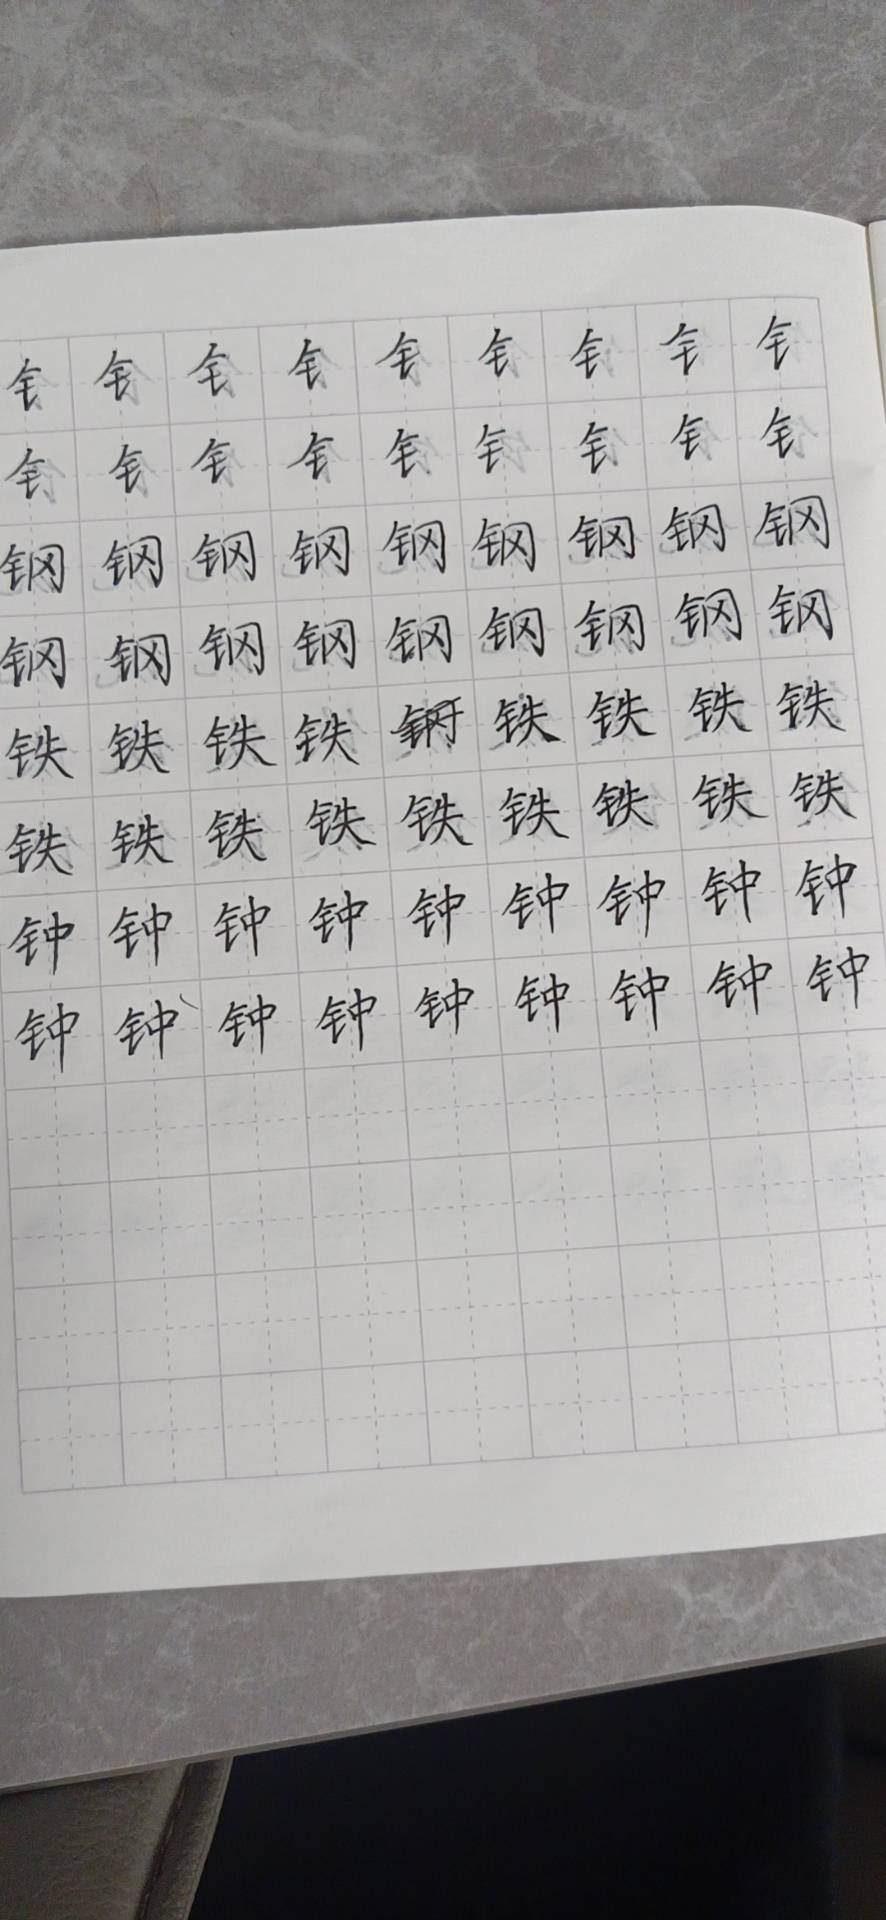 钅 钅 钅 钅 钅 钅 钅 钅 钅
钅 钅 钅 钅 钅 钅 钅 钅 钅
钢 钢 钢 钢 钢 钢 钢 钢 钢
钢 钢 钢 钢 钢 钢 钢 钢 钢
铁 铁 铁 铁 铁 铁 铁 铁
铁 铁 铁 铁 铁 铁 铁 铁 铁
钟 钟 钟 钟 钟 钟 钟 钟 钟
钟 钟 钟 钟 钟 钟 钟 钟 钟